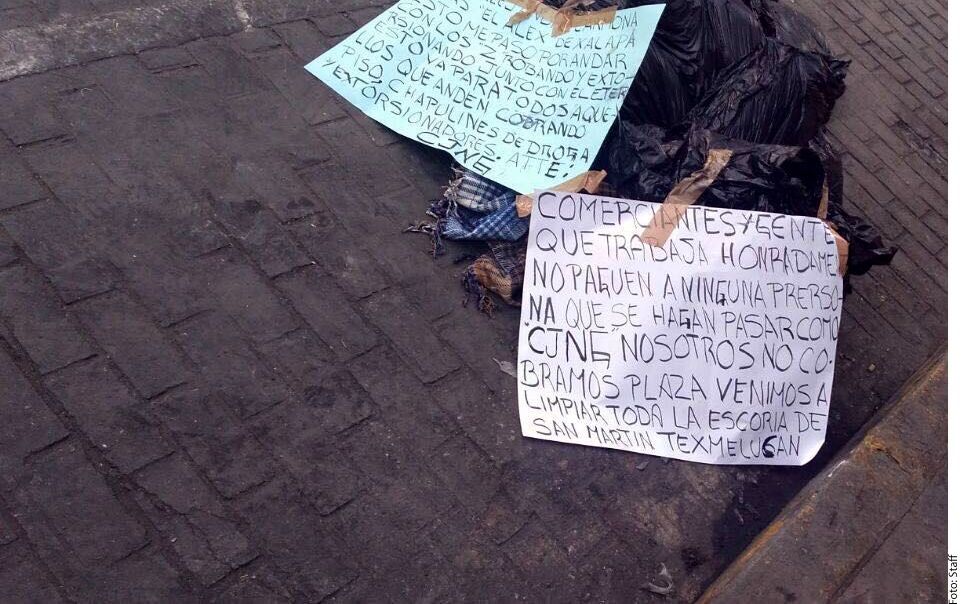 OSTO "EL ALEX CARMONA
ERSON LO ME PASO POR ANDAR DE XALAPA
LOS Z ROBANDO Y EXTO-
RSIONANDO JUNTO CON EL ETER
ESTO VA PARA TODOS AQUE-
LLOS QUE ANDEN COBRANDO
PISO, CHAPULINES DE DROGA
Y EXTORSIONADORES. ATTE:
CJNG
COMERCIANTES Y GENTE
QUE TRABAJA HONRADAMEN
NO PAGUEN A NINGUNA PRERSO-
NA QUE SE HAGAN PASAR COMO
"CJNG, NOSOTROS NO CO-
BRAMOS PLAZA VENIMOS A
LIMPIAR TODA LA ESCORIA DE
SAN MARTIN TEXMELUCAN
Foto: Staff